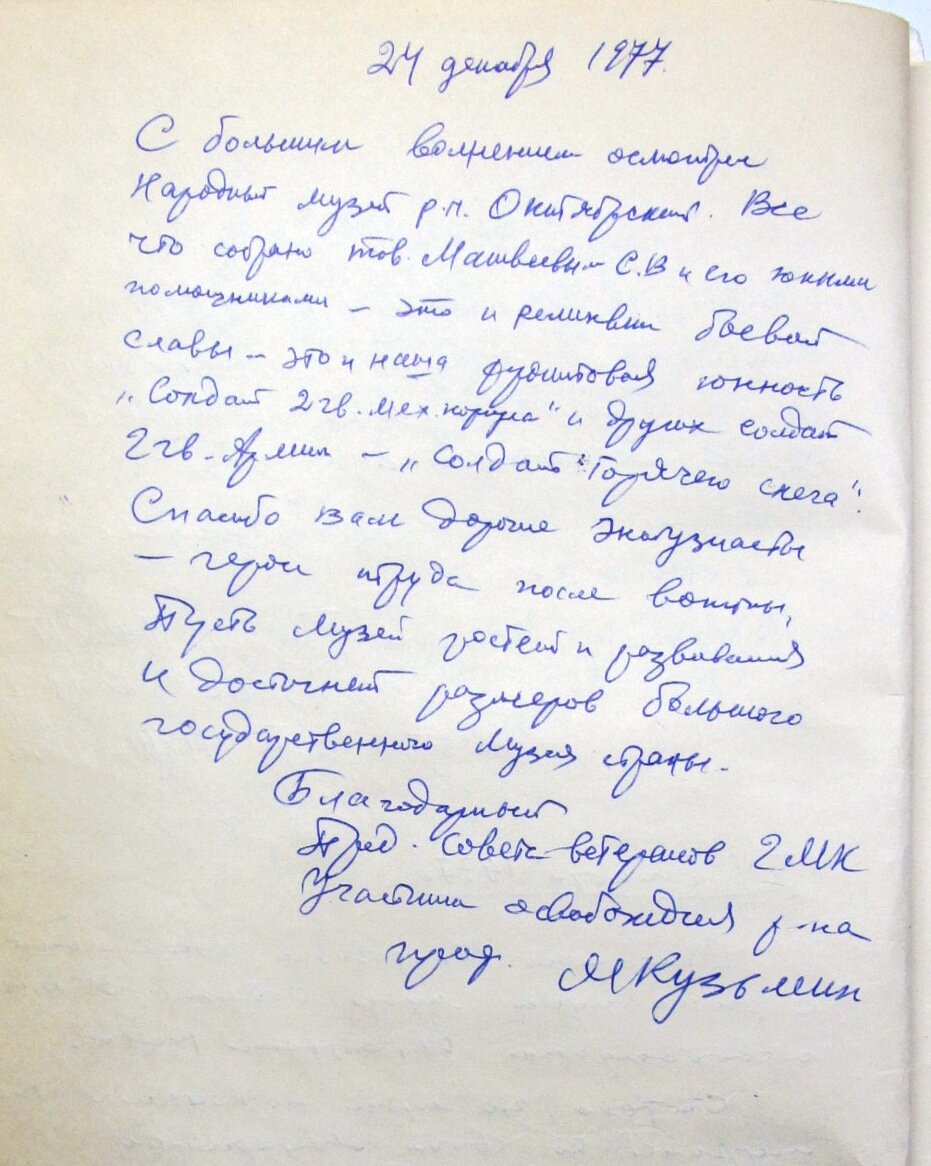 24 декабря 1977.
С большим волнением осмотрел
Народный музей р.п. Октябрьский. Все
что собрано тов. Матвеевым С.В и его юными
помощниками – это и реликвии боевой
славы – это и наша фронтовая юность
„Солдат 2 гв. мех. корпуса" и других солдат
2 гв. Армии – „Солдат "Горячего снега".
Спасибо Вам дорогие энтузиасты
– герои труда после войны,
Пусть музей растет и развивается
и достигнет размеров большого
государственного музея страны.
Благодарный
Пред. совета ветеранов 2МК
Участник освобождения р-на
проф. МКузьмин